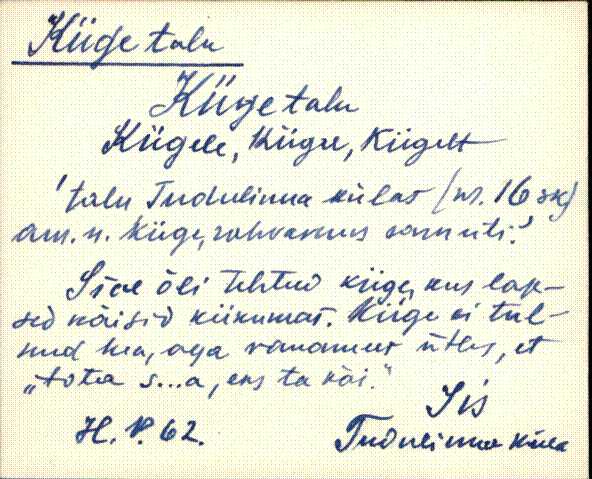 Küge talu
Küge talu
Kügele, Kügre, Kügelt
'talu Tudulinna külas (nr. 16 sk)
am. n. Küge, rahvasuus samuti.'
Siia õli tehtud küge, kus lap-
sed käisid kiikumas. Küge ei tul-
nud hea, aga vanamees ütles, et
„tota s...a, eks ta käi."
Iis
H. V. 62.
Tudulinna küla